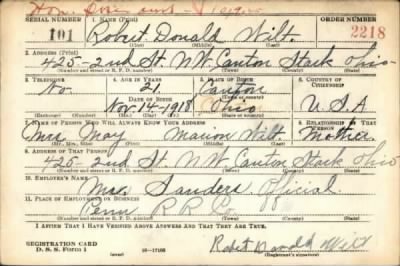 SERIAL NUMBER 1. NAME (Print) ORDER NUMBER
101 Robert Donald Wilt. 2218
(First) (Middle) (Last)
2. ADDRESS (Print)
425-2nd St. N.W. Canton Stark Ohio
(Number and street or R. F. D. number) (Town) (County) (State)
3. TELEPHONE 4. AGE IN YEARS 5. PLACE OF BIRTH 6. COUNTRY OF CITIZENSHIP
No 21 Canton
DATE OF BIRTH
Nov-14-1918 Ohio U.S.A
(Mo.) (Day) (Yr.) (State or country)
7. NAME OF PERSON WHO WILL ALWAYS KNOW YOUR ADDRESS 8. RELATIONSHIP OF THAT PERSON
Mrs. May Marion Wilt. Mother
(Mr., Mrs., Miss) (First) (Middle) (Last)
9. ADDRESS OF THAT PERSON
425-2nd St. N.W. Canton Stark Ohio
(Number and street or R. F. D. number) (Town) (County) (State)
10. EMPLOYER'S NAME
Sanders Official
11. PLACE OF EMPLOYMENT OR BUSINESS
Penn R R Co.
(Number and street or R. F. D. number) (Town) (County) (State)
I AFFIRM THAT I HAVE VERIFIED ABOVE ANSWERS AND THAT THEY ARE TRUE.
REGISTRATION CARD
D. S. S. Form 1 Robert Donald Wilt
(Registrant's signature)